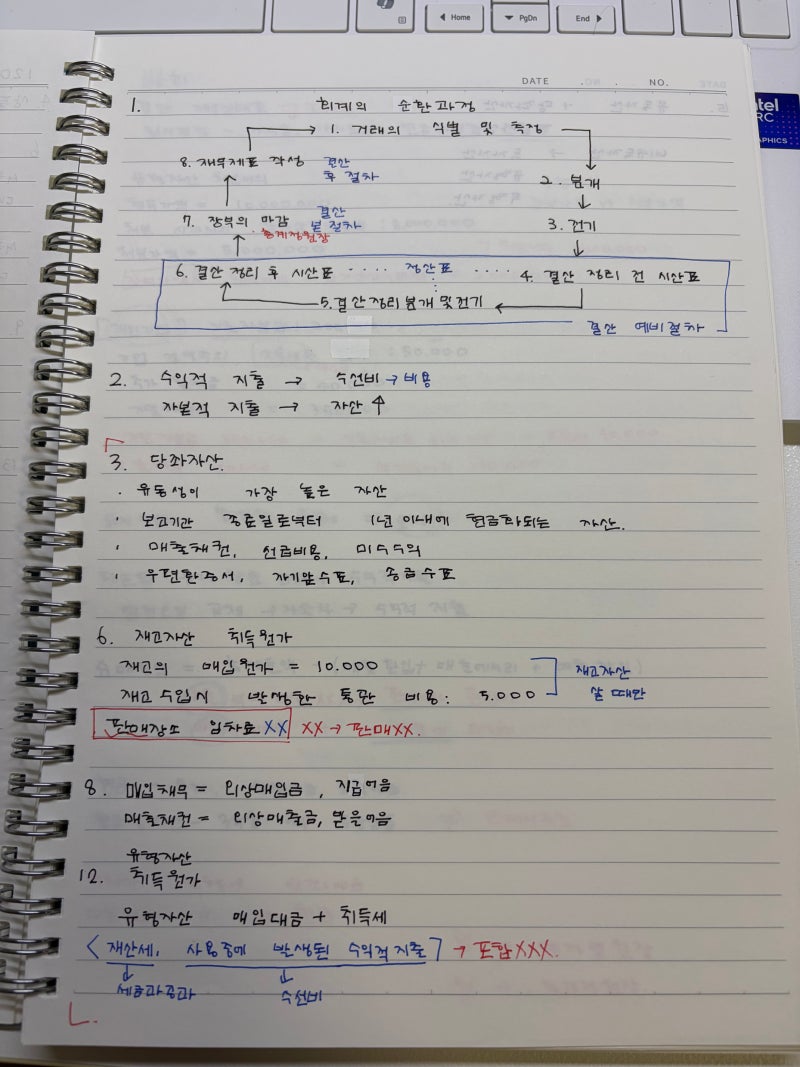 Home
PgDn
End
intel
ARC
GRAPHICS
DATE . . NO.
1. 회계의 순환과정
1. 거래의 식별 및 측정
8. 재무제표 작성 결산 후 절차
2. 분개
7. 장부의 마감 결산 본 절차
총계정원장
3. 전기
6. 결산 정리 후 시산표 ···· 정산표 ····· 4. 결산 정리 전 시산표
5. 결산정리분개 및 전기
결산 예비절차
2. 수익적 지출 → 수선비 → 비용
자본적 지출 → 자산 ↑
3. 당좌자산.
· 유동성이 가장 높은 자산
· 보고기간 종료일로부터 1년 이내에 현금화되는 자산.
· 매출채권, 선급비용, 미수수익
· 우편환증서, 자기앞수표, 송금수표
6. 재고자산 취득원가
재고의 매입원가 = 10.000
재고자산
재고 수입시 발생한 통관 비용: 5.000
살 때만
판매장소 임차료 XX XX → 판매XX.
8. 매입채무 = 외상매입금, 지급어음
매출채권 = 외상매출금, 받을어음
유형자산
12. 취득원가
유형자산 매입대금 + 취득세
< 재산세, 사용중에 발생된 수익적지출 ] → 포함XXX.
세금과공과
수선비